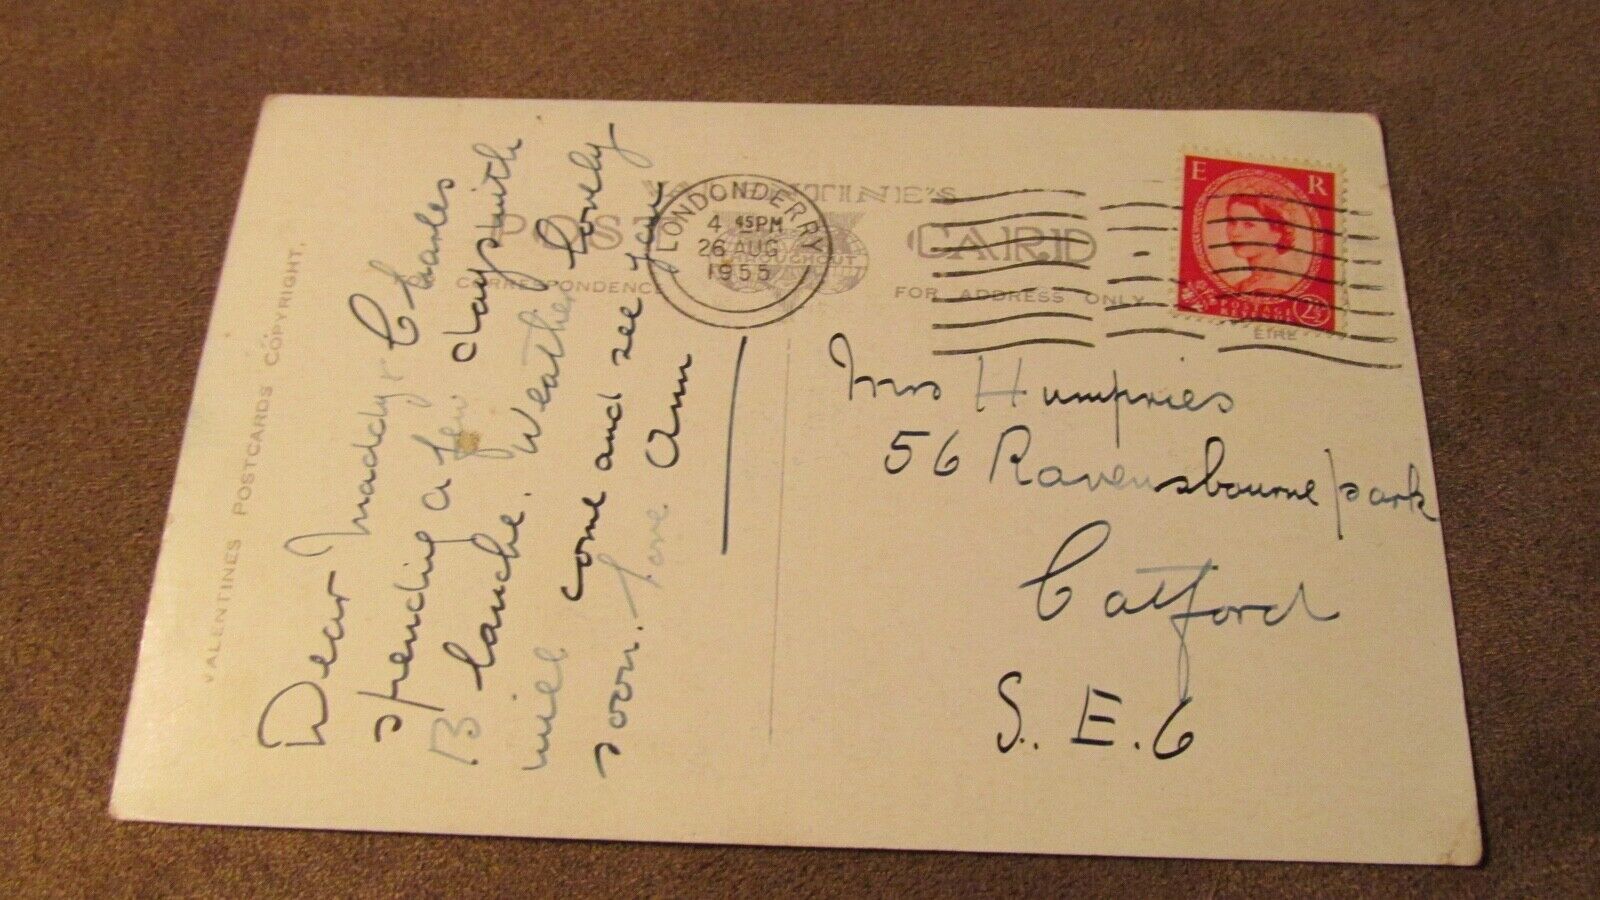 VALENTINES POSTCARDS COPYRIGHT.
Dear Maddy & Charles
spending a few days with
Blanche. Weather lovely
will come and see you
soon. Love Ann
VALENTINE'S
POST CARD
THROUGHOUT
CORRESPONDENCE
FOR ADDRESS ONLY
LONDONDERRY
4 45PM
26 AUG
1955
E R
POSTAGE
REVENUE
2½D
EIRE
Mrs Humpries
56 Ravensbourne park
Catford
S.E.6